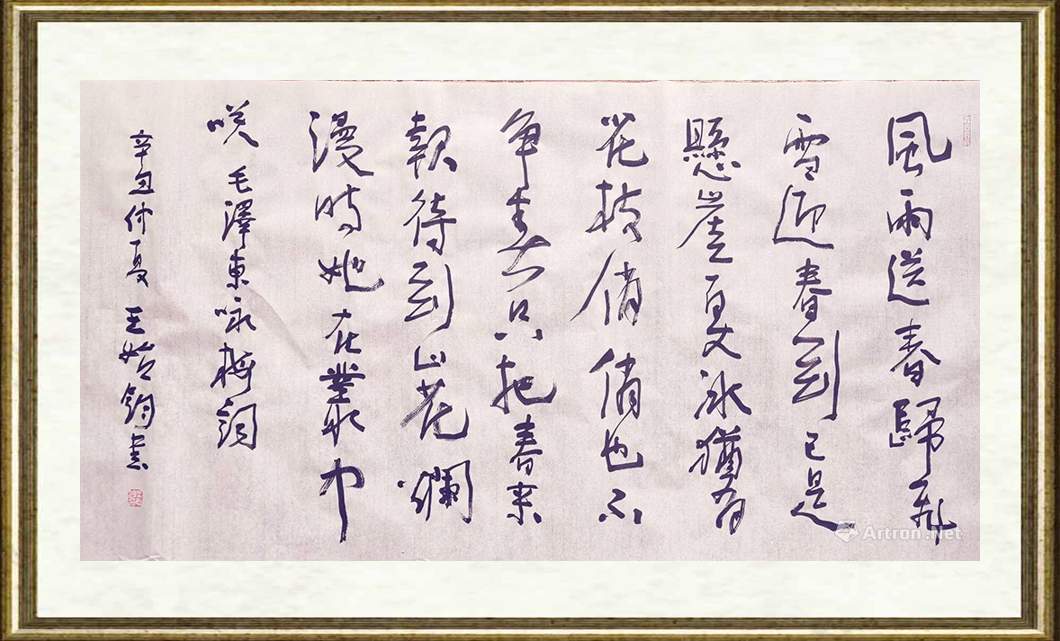 風雨送春歸飛
雪迎春到已是
懸崖百丈冰猶有
花枝俏俏也不
争春只把春来
報待到山花爛
漫時她在叢中
咲 毛澤東咏梅詞
辛丑仲夏 王始鈞書
Artron.Net